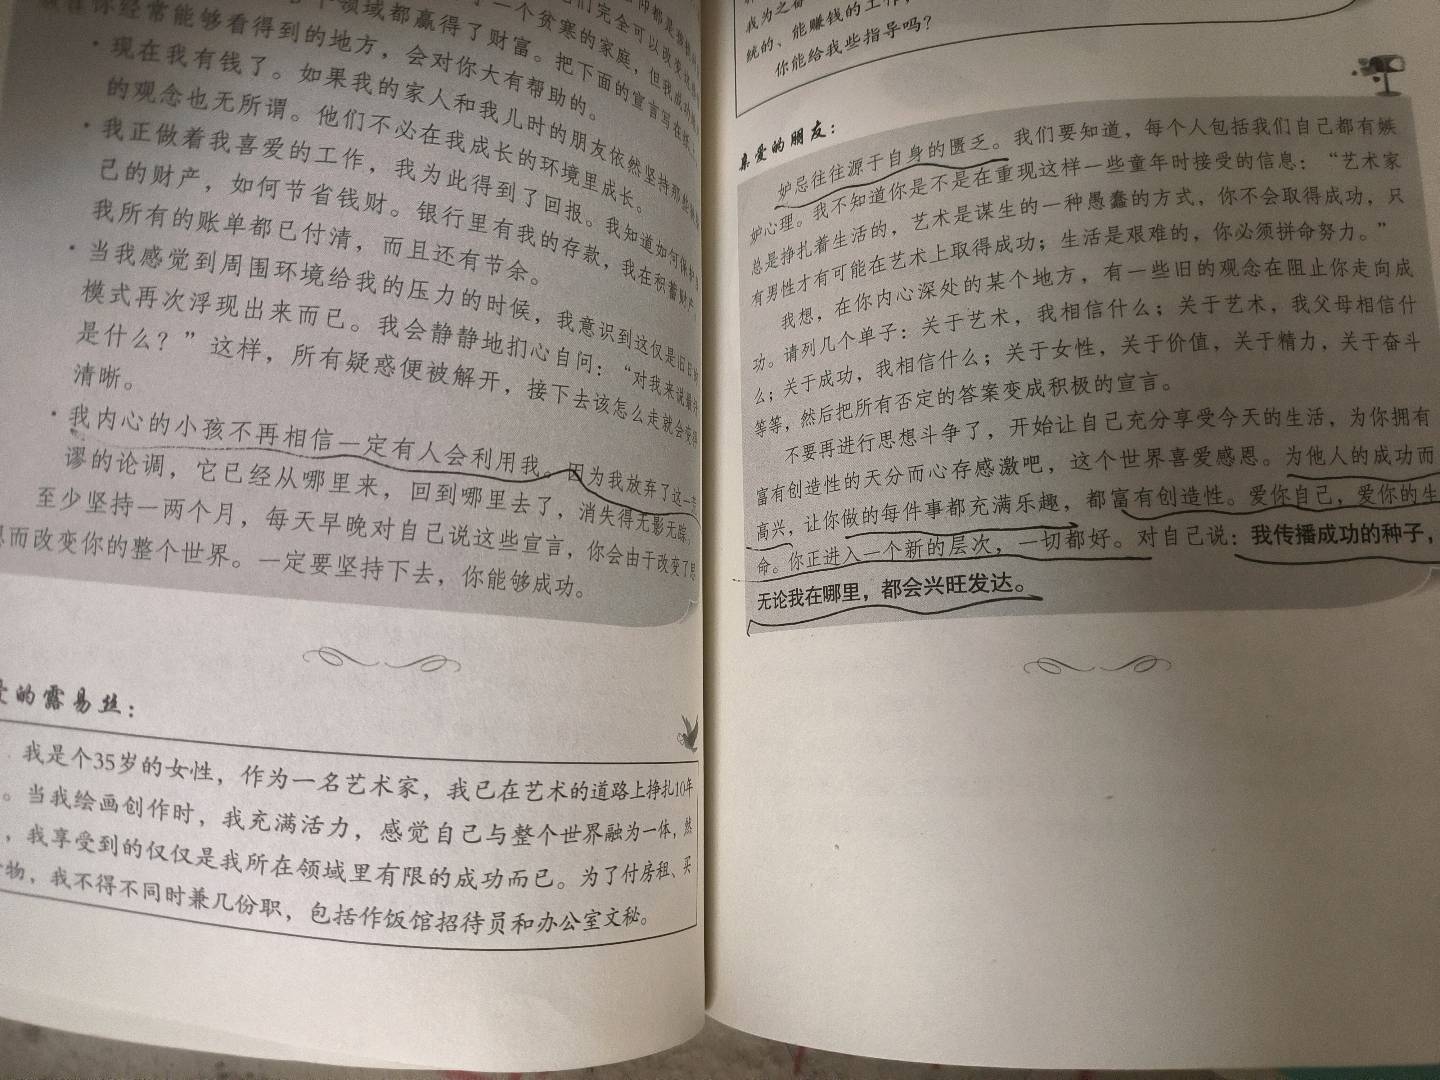 一个贫寒的家庭，但我成功
领域都赢得了财富。把下面的宣言写在纸上，
你经常能够看得到的地方，会对你大有帮助的。
·现在我有钱了。如果我的家人和我儿时的朋友依然坚持那些
的观念也无所谓。他们不必在我成长的环境里成长。
·我正做着我喜爱的工作，我为此得到了回报。我知道如何保护自
己的财产，如何节省钱财。银行里有我的存款，我在积蓄财产，
我所有的账单都已付清，而且还有节余。
·当我感觉到周围环境给我的压力的时候，我意识到这仅是旧日的
模式再次浮现出来而已。我会静静地扪心自问：“对我来说最好
是什么？”这样，所有疑惑便被解开，接下去该怎么走就会变得
清晰。
·我内心的小孩不再相信一定有人会利用我。因为我放弃了这一荒
谬的论调，它已经从哪里来，回到哪里去了，消失得无影无踪。
至少坚持一两个月，每天早晚对自己说这些宣言，你会由于改变了思
而改变你的整个世界。一定要坚持下去，你能够成功。
爱的露易丝：
我是个35岁的女性，作为一名艺术家，我已在艺术的道路上挣扎10年
。当我绘画创作时，我充满活力，感觉自己与整个世界融为一体，然
，我享受到的仅仅是我所在领域里有限的成功而已。为了付房租、买
物，我不得不同时兼几份职，包括作饭馆招待员和办公室文秘。
我为之奋
统的、能赚钱的工作，
你能给我些指导吗？
亲爱的朋友：
妒忌往往源于自身的匮乏。我们要知道，每个人包括我们自己都有嫉
妒心理。我不知道你是不是在重现这样一些童年时接受的信息：“艺术家
总是挣扎着生活的，艺术是谋生的一种愚蠢的方式，你不会取得成功，只
有男性才有可能在艺术上取得成功；生活是艰难的，你必须拼命努力。”
我想，在你内心深处的某个地方，有一些旧的观念在阻止你走向成
功。请列几个单子：关于艺术，我相信什么；关于艺术，我父母相信什
么；关于成功，我相信什么；关于女性，关于价值，关于精力，关于奋斗
等等，然后把所有否定的答案变成积极的宣言。
不要再进行思想斗争了，开始让自己充分享受今天的生活，为你拥有
富有创造性的天分而心存感激吧，这个世界喜爱感恩。为他人的成功而
高兴，让你做的每件事都充满乐趣，都富有创造性。爱你自己，爱你的生
命。你正进入一个新的层次，一切都好。对自己说：我传播成功的种子，
无论我在哪里，都会兴旺发达。